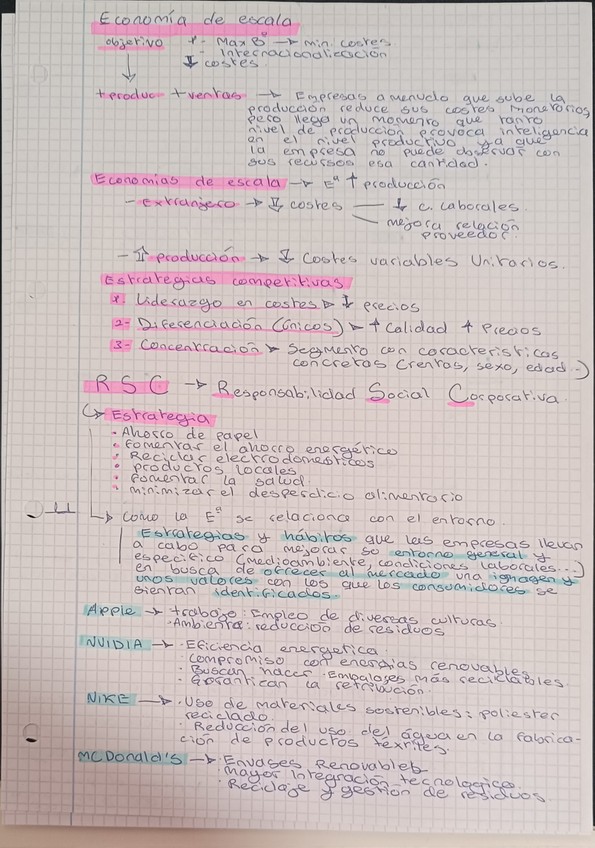 Economía de escala
objetivo + Max Bº → min. costes
- Internacionalización
↓ costes
+produc +ventas → Empresas a menudo que sube la
producción reduce sus costes monetarios,
pero llega un momento que tanto
nivel de producción provoca inteligencia
en el nivel productivo ya que
la empresa no puede observar con
sus recursos esa cantidad.
Economías de escala → Eª ↑ producción
- extranjero → ↓ costes — ↓ c. laborales.
mejora relación
proveedor.
- ↑ producción → ↓ costes variables Unitarios.
Estrategias competitivas
1. Liderazgo en costes ▸ ↓ precios
2- Diferenciación (únicos) ▸ ↑ Calidad ↑ Precios
3- Concentración ▸ Segmento con características
concretas (rentas, sexo, edad..)
R S C → Responsabilidad Social Corporativa.
↳ Estrategia
· Ahorro de papel
· Fomentar el ahorro energético
· Reciclar electrodomésticos
· productos locales
· fomentar la salud
· minimizar el desperdicio alimentario
↳ Como la Eª se relaciona con el entorno.
Estrategias y hábitos que las empresas llevan
a cabo para mejorar su entorno general y
específico (medioambiente, condiciones laborales...)
en busca de ofrecer al mercado una imagen y
unos valores con los que los consumidores se
sientan identificados.
Apple → · trabajo: Empleo de diversas culturas.
· Ambiente: reducción de residuos
NVIDIA → · Eficiencia energetica.
· Compromiso con energías renovables
· Buscan hacer Embalajes más reciclables.
· Garantizan la retribución.
NIKE → · Uso de materiales sostenibles: poliester
reciclado.
· Reducción del uso del agua en la fabrica-
ción de productos textiles.
McDonald's → · Envases Renovables
· Mayor Integración tecnologica.
· Reciclaje y gestión de residuos.